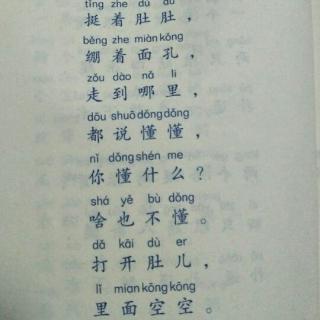 tǐng zhe dù dù
挺着肚肚，
běng zhe miàn kǒng
绷着面孔，
zǒu dào nǎ li
走到哪里，
dōu shuō dǒng dǒng
都说懂懂，
nǐ dǒng shén me
你懂什么？
shá yě bù dǒng
啥也不懂。
dǎ kāi dù er
打开肚儿，
lǐ mian kōng kōng
里面空空。